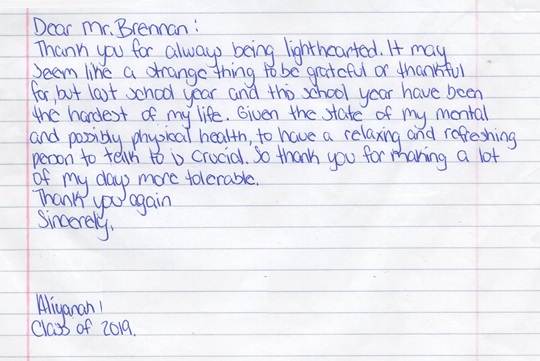 Dear Mr. Brennan:
Thank you for always being lighthearted. It may
seem like a strange thing to be grateful or thankful
for, but last school year and this school year have been
the hardest of my life. Given the state of my mental
and possibly physical health, to have a relaxing and refreshing
person to talk to is crucial. So thank you for making a lot
of my days more tolerable.
Thank you again
Sincerely,
Aliyanah
Class of 2019.